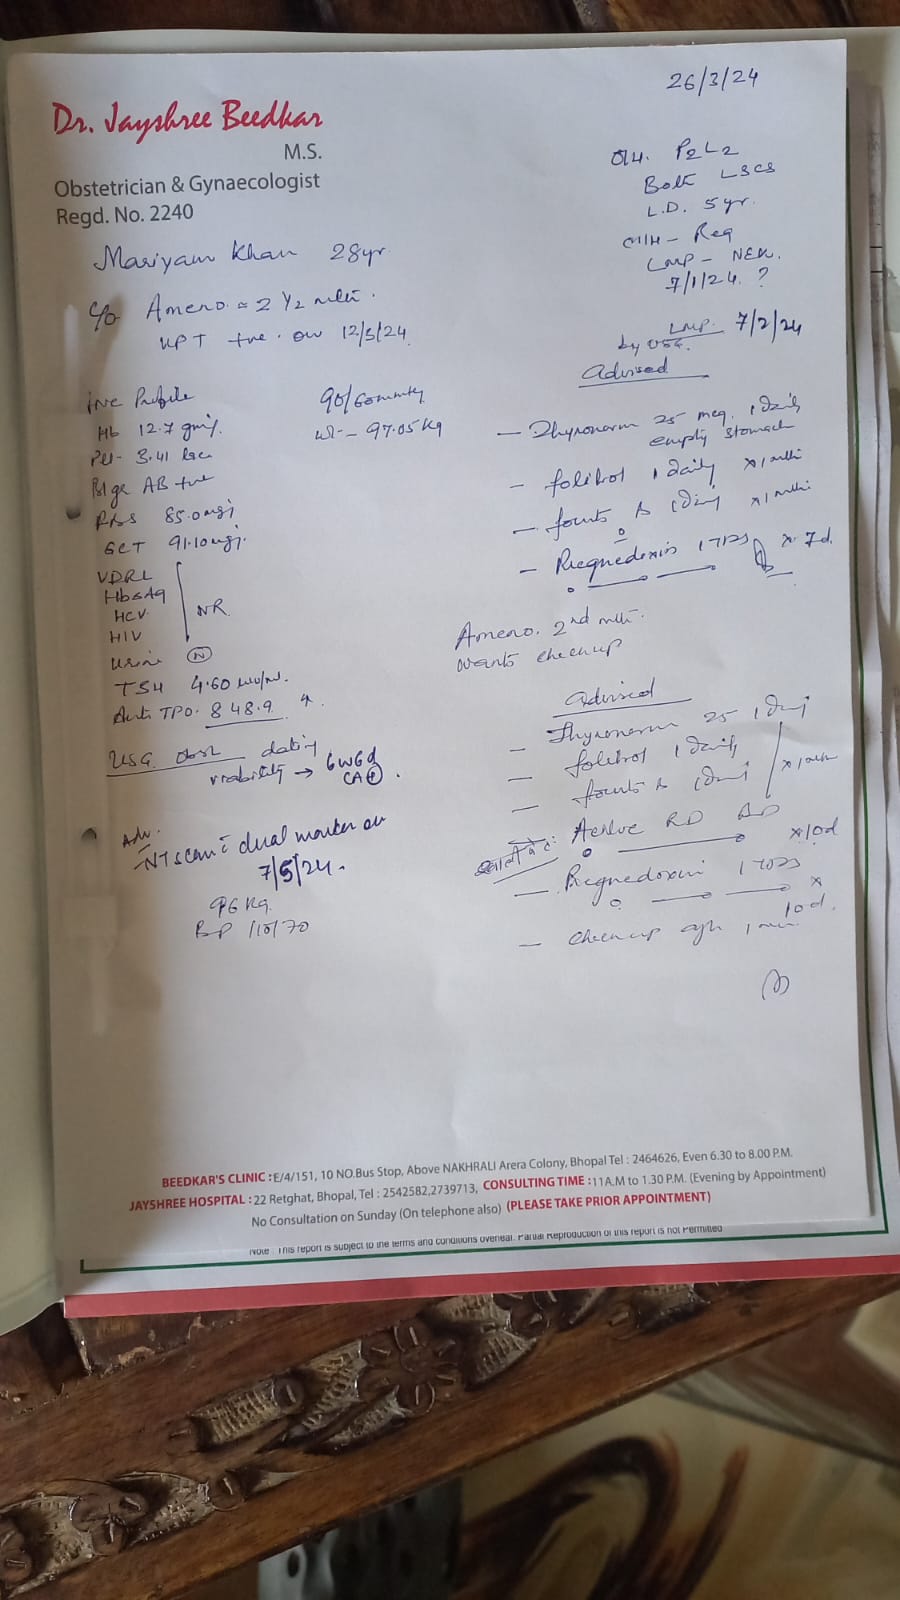 26/3/24
Dr. Jayshree Beedkar
M.S.
Obstetrician & Gynaecologist
Regd. No. 2240
O/H. P2L2
Both LSCS
L.D. 5yr.
M/H - Reg
LMP - NEK.
7/1/24. ?
Mariyam Khan 28yr.
C/o Ameno. = 2 1/2 mth.
UPT +ve. on 12/3/24.
LMP. 7/2/24
by USG.
Inv Profile
Hb 12.7 gm%.
Plt- 3.41 lac
Bl gr AB +ve
RBS 85.0mg%
GCT 91.10mg%.
VDRL
HbsAg
HCV
HIV
NR
Urine N
TSH 4.60
Anti TPO. 848.9
USG Obst dating
viability → 6w6d
CA+.
90/60mmHg
wt- 97.05 Kg
Adv.
- NT scan c dual marker on
7/5/24.
96 Kg
BP 110/70
Advised
- Thyronorm 25 mcg. 1 daily
empty stomach
- folitrol 1 daily x 1 mth
- 1 daily x 1 mth
- Pregnedoxin 1 TDS x 7d.
Ameno. 2nd mth.
wants checkup
Advised
- Thyronorm 25 1 daily
- folitrol 1 daily
- 1 daily x 1 mth
खाली पेट RD x 10d
- Pregnedoxin 1 TDS x
10d.
- checkup aft 1 mth
BEEDKAR'S CLINIC : E/4/151, 10 NO.Bus Stop, Above NAKHRALI Arera Colony, Bhopal Tel : 2464626, Even 6.30 to 8.00 P.M.
JAYSHREE HOSPITAL : 22 Retghat, Bhopal, Tel : 2542582,2739713, CONSULTING TIME : 11A.M to 1.30 P.M. (Evening by Appointment)
No Consultation on Sunday (On telephone also) (PLEASE TAKE PRIOR APPOINTMENT)
Note : This report is subject to the terms and conditions overleaf. Partial Reproduction of this report is not Permitted